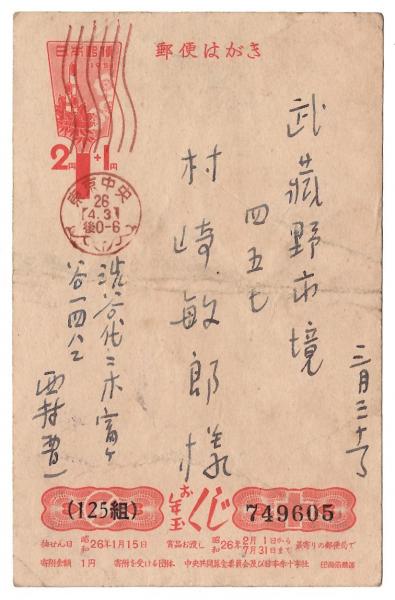 郵便はがき
日本郵便
2円+1円
東京中央
26
4.3
後0-6
武蔵野市境
四五七
村崎敏郎様
三月三十
渋谷代々木富ヶ
谷一四八二
西村
お年玉くじ
(125組)
749605
抽せん日 昭和26年1月15日 賞品お渡し 昭和26年 2月1日から 7月31日まで 最寄りの郵便局で
寄附金額 1円 寄附を受ける団体 中央共同募金委員会及び日本赤十字社 印刷局製造